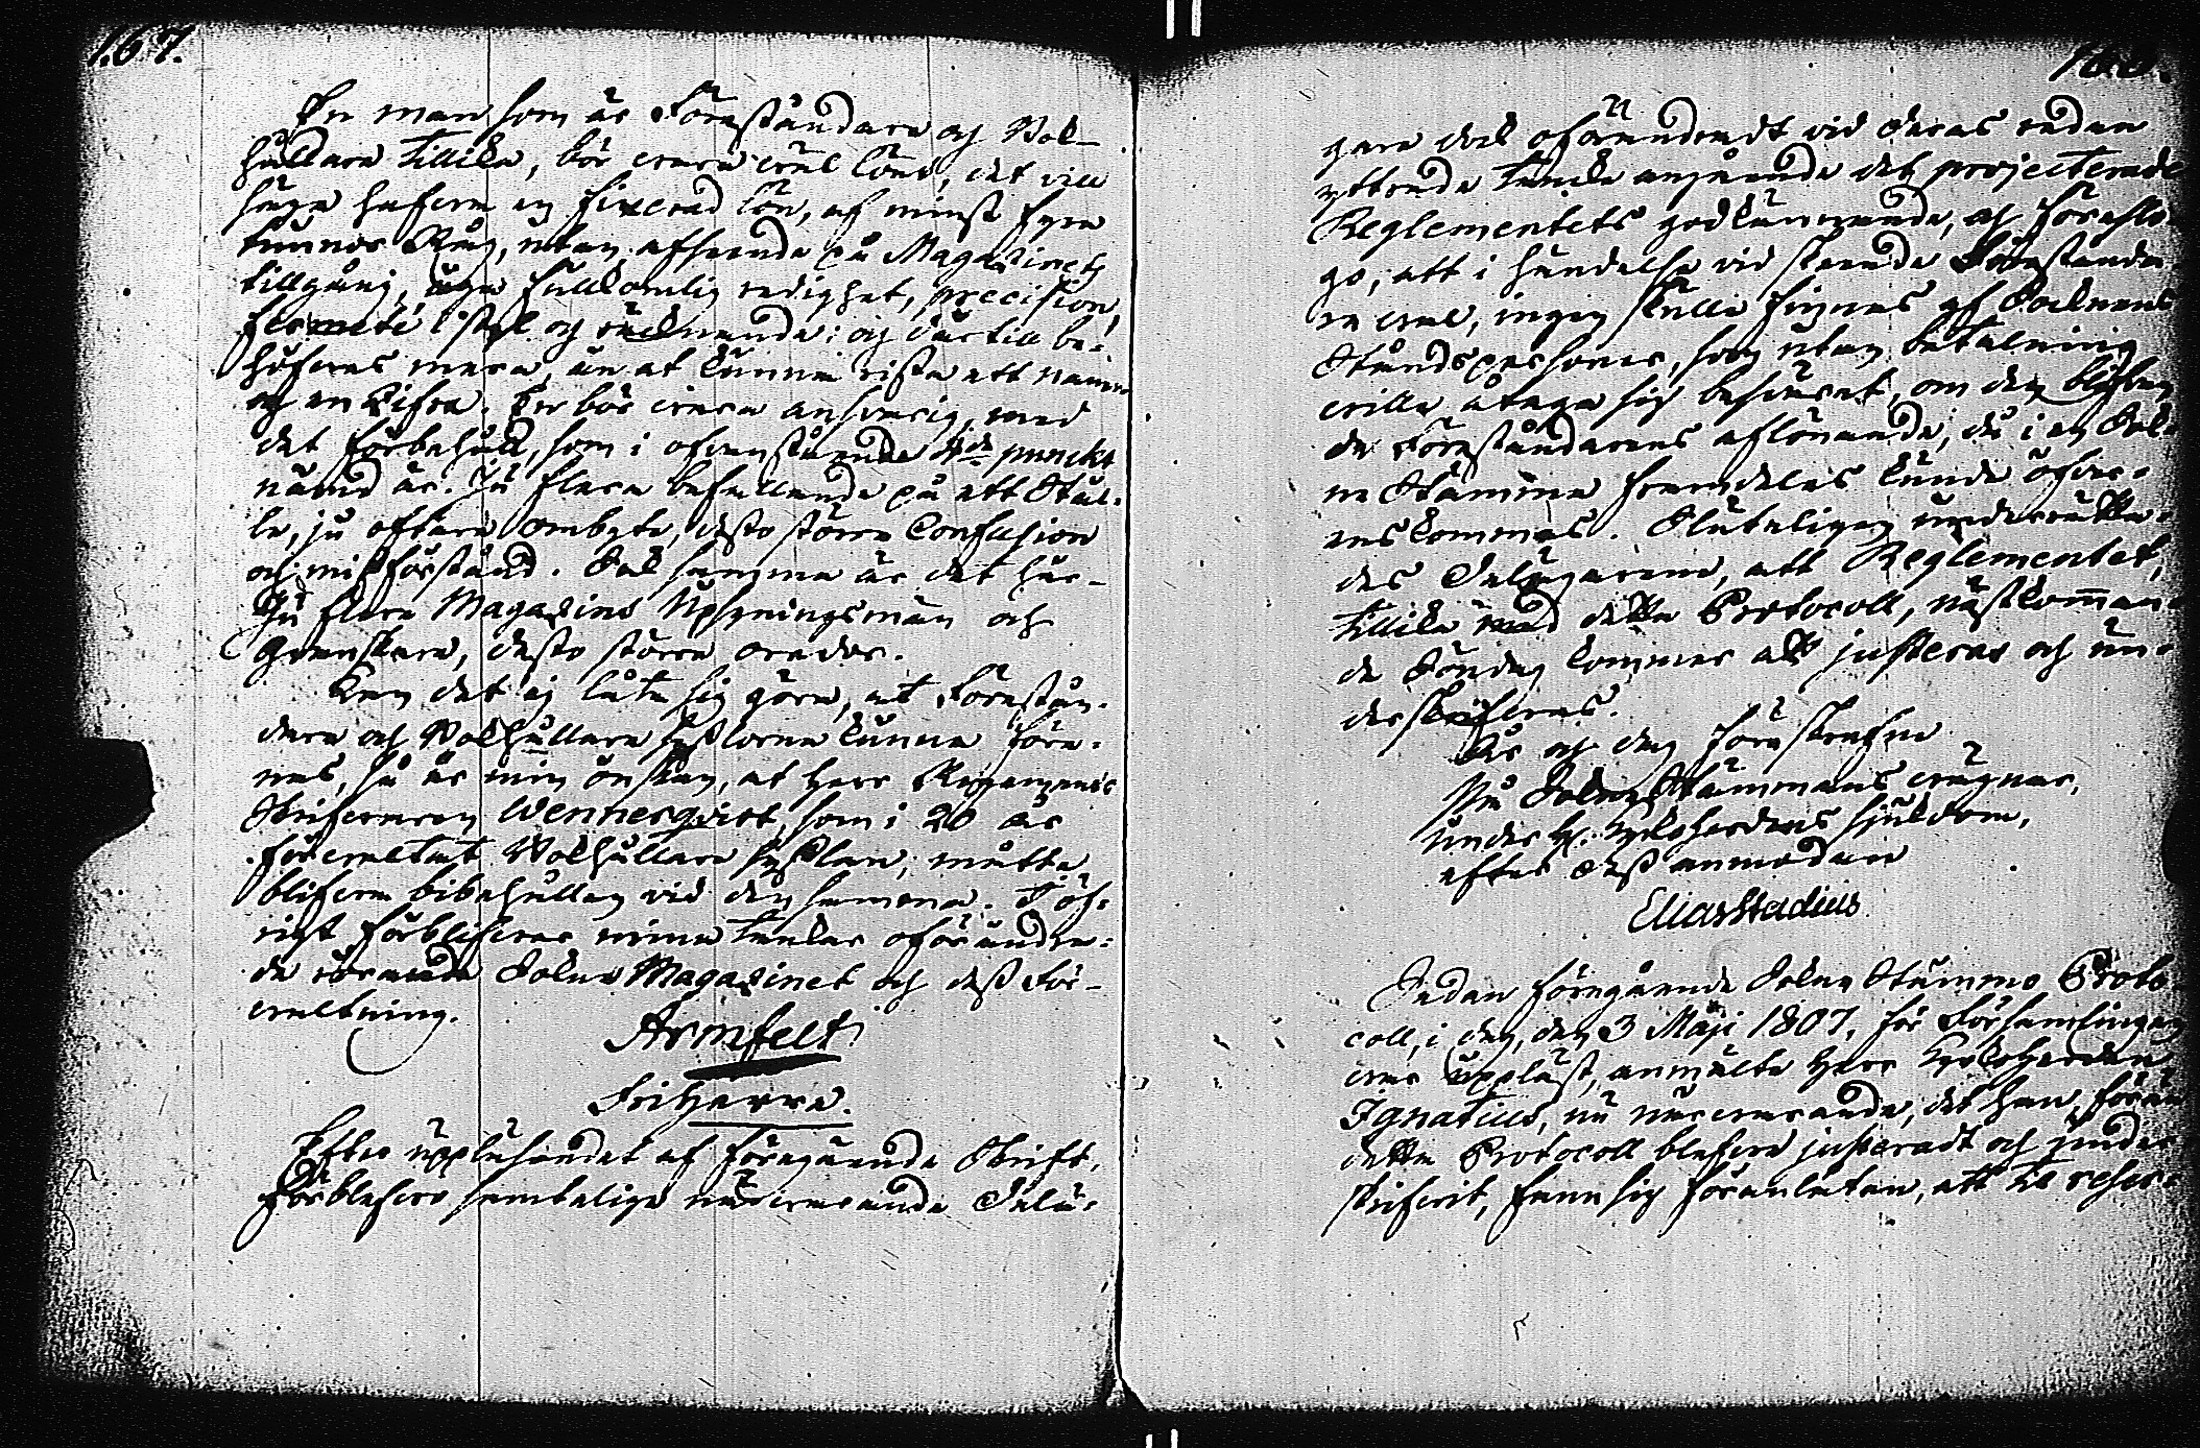 167.
En man som är Föreståndare och Bok-
hållare tillika, bör vara väl lönt, det vill
säga hafva en fixerad lön, af minst fyra
tunnor Råg, utan afseende på Magazinets
tillgång, äga fullkomlig redighet, precision,
fermeté i styl och räknande: och dertill be-
höfves mera, än at kunna rista ett namn
och en Ziffra. En bör vara ansvarig, med
det förbehåll, som i ofvanstående punckt
nämd är. Ju flera befallande på ett Stäl-
le, ju oftare ombyte, desto större Confusion
och missförstånd. Det samma är det här-
Ju flera Magazins Upsyningsmän och
Granskare, desto större oreder.
Kan det ej låta sig göra, at Förestån-
dare och Bokhållare sysslorna kunna före-
nas, så är min önskan, at Herr Regements
Skrifvaren Wennerqvist, som i 20 år
förvaltat Bokhållare sysslan, måtte
blifva bibehållen vid den samma. I öf-
rigt förblifver mina tankar oförändra-
de rörande Sokne Magazinet och dess För-
valtning.
Armfelt
Friherre.
Efter uppläsandet af föregående Skrift,
förblefvo samtelige närvarande Delä-
168.
gare vid oförändradt vid deras redan
yttrade tanke angående det projecterade
Reglementets godkännande, och föreslo-
go, att i händelse vid skeende Föreståndar-
re val, ingen skulle finnas af Socknens
Ståndspersoner, som utan betalning
ville åtaga sig besväret, om den blifvan-
de Föreståndarens aflönande, då i en Sok-
ne Stämma framdeles kunde öfver-
enskommas. Slutaligen underrätta-
des Delägarene, att Reglementet,
tillika med detta Protocoll, nästkomman-
de Söndag kommer att justeras och un-
derskrifvas.
År och dag föreskrefne
På Sokne Stämmans vägnar,
under H. Kyrkoherdens sjukdom,
efter dess anmodan
Elias Stadius
Sedan föregående Sokne Stämmo Proto-
coll, i dag, den 3 Maji 1807, för Församlingen
var uppläst, anmälte Herr Kyrkoherden
Ignatius, nu närvarande, det han, förän
detta Protocoll blefve justeradt och under-
skrifvit, fann sig föranlåten, att til reser-